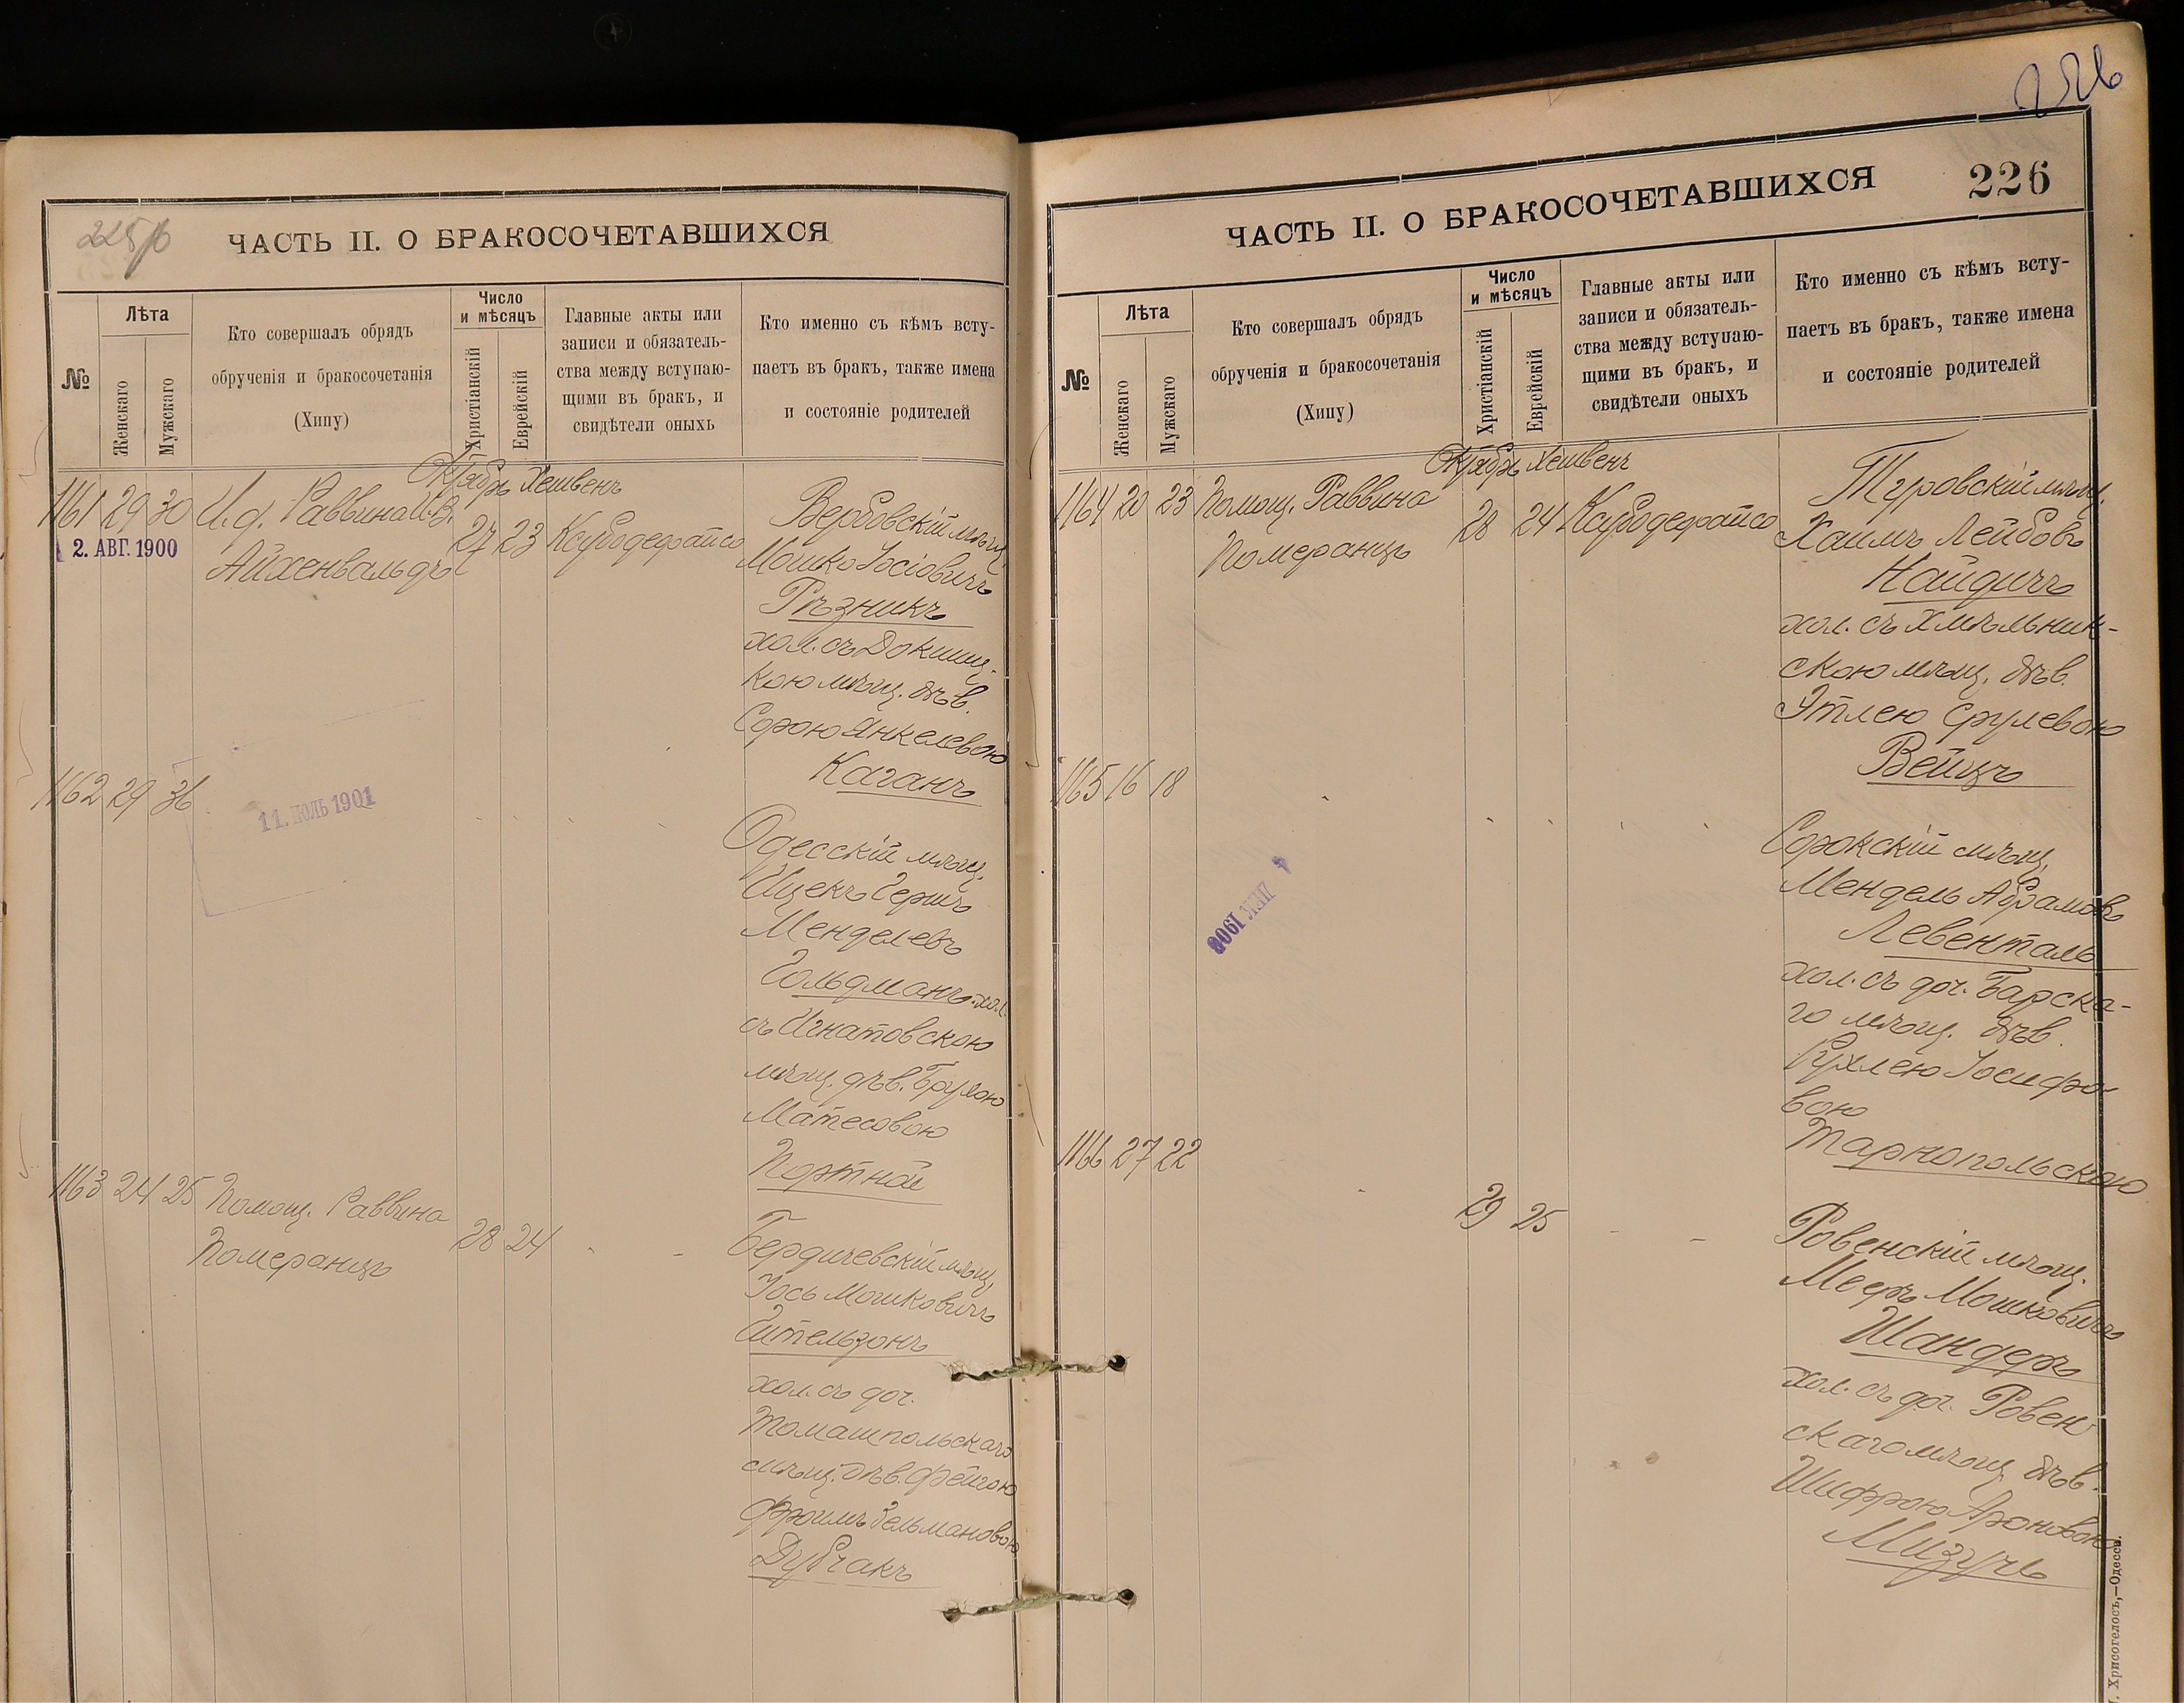 225 об
ЧАСТЬ II. О БРАКОСОЧЕТАВШИХСЯ
№
Лѣта
Женскаго
Мужскаго
Кто совершалъ обрядъ
обрученія и бракосочетанія
(Хипу)
Число
и мѣсяцъ
Христіанскій
Еврейскій
Главные акты или
записи и обязатель-
ства между вступаю-
щими въ бракъ, и
свидѣтели оныхъ
Кто именно съ кѣмъ всту-
паетъ въ бракъ, также имена
и состояніе родителей
Октябрь Хешвенъ
1161 29 30 И. д. Раввина И.В.
Айхенвальдъ
2. АВГ. 1900
27 23
Вербовскій мѣщ.
Мошко Іосіовичъ
Рѣзникъ
хол. съ Докшиц-
кою мѣщ. дѣв.
Сорою Янкелевою
Каганъ
1162 29 36
11. ІЮЛЬ 1901
Одесскій мѣщ.
Ицекъ Гершъ
Менделевъ
Гольдманъ хол.
съ Игнатовскою
мѣщ. дѣв. Брухою
Матесовою
Портной
1163 24 25 Помощ. Раввина
Померанцъ
28 24
Бердичевскій мѣщ.
Іось Мошковичъ
Гительзонъ
хол. съ доч.
Томашпольскаго
мѣщ. дѣв. Фейгою
Фроимъ Зельмановою
Дубчакъ
226
226
ЧАСТЬ II. О БРАКОСОЧЕТАВШИХСЯ
№
Лѣта
Женскаго
Мужскаго
Кто совершалъ обрядъ
обрученія и бракосочетанія
(Хипу)
Число
и мѣсяцъ
Христіанскій
Еврейскій
Главные акты или
записи и обязатель-
ства между вступаю-
щими въ бракъ, и
свидѣтели оныхъ
Кто именно съ кѣмъ всту-
паетъ въ бракъ, также имена
и состояніе родителей
Октябрь Хешвенъ
1164 20 23 Помощ. Раввина
Померанцъ
28 24
Туровскій мѣщ.
Хаимъ Лейбовъ
Найдичъ
хол. съ Хмѣльник-
скою мѣщ. дѣв.
Этлею Срулевою
Вейцъ
1165 16 18
4 ДЕК 1908
Сорокскій мѣщ.
Мендель Абрамовъ
Левенталь
хол. съ доч. Барска-
го мѣщ. дѣв.
Рухлею Іосифо-
вою
Тарнопольскою
1166 27 22
29 25
Ровенскій мѣщ.
Мееръ Мошковичъ
Шандеръ
хол. съ доч. Ровен
скаго мѣщ. дѣв.
Шифрою Ароновою
Мизучъ
Хрисогелосъ,—Одесса.